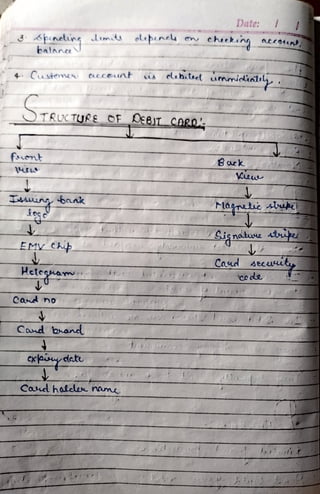 Date: / /
3 Spending limits depends on checking account
balance
4 Customer account is debited immidiately.
STRUCTURE OF DEBIT CARD:
Front
view
Back
View
Issuing bank
logo
Magnetic stripe
EMV Chip
Signature stripes
Hologram
Card security
code
Card no
Card brand
expiry date
Card holder name